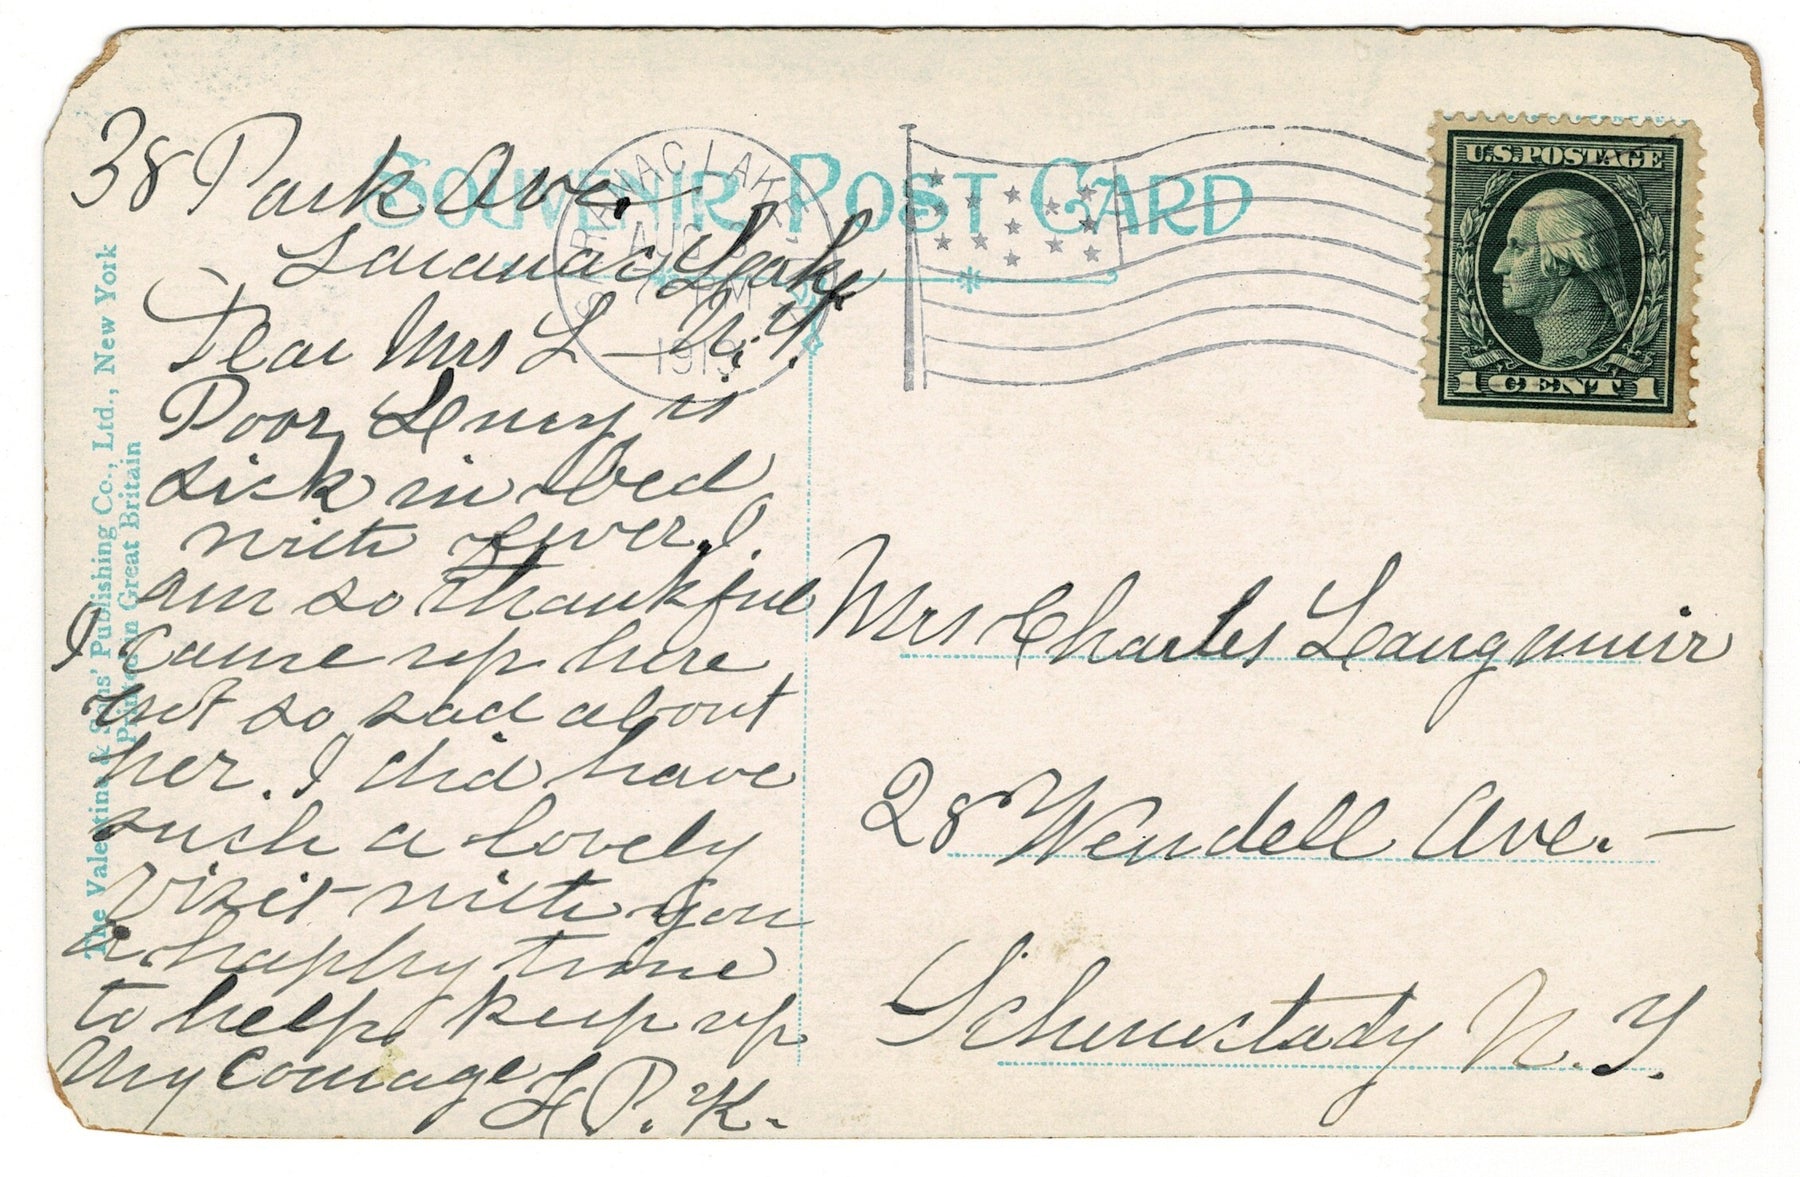 SOUVENIR POST CARD
SARANAC LAKE
AUG
1913
U.S. POSTAGE
1 CENT 1
The Valentine & Sons' Publishing Co., Ltd., New York
Printed in Great Britain
38 Park Ave.
Saranac Lake
N.Y.
Dear Mrs L—
Poor is
sick in bed
with fever. I.
am so thankful
I came up here
not so sad about
her. I did have
such a lovely
visit with you
a happy time
to help keep up
my courage
P. K.
Mrs Charles Langmuir
28 Wendell Ave. —
Schenectady N. Y.